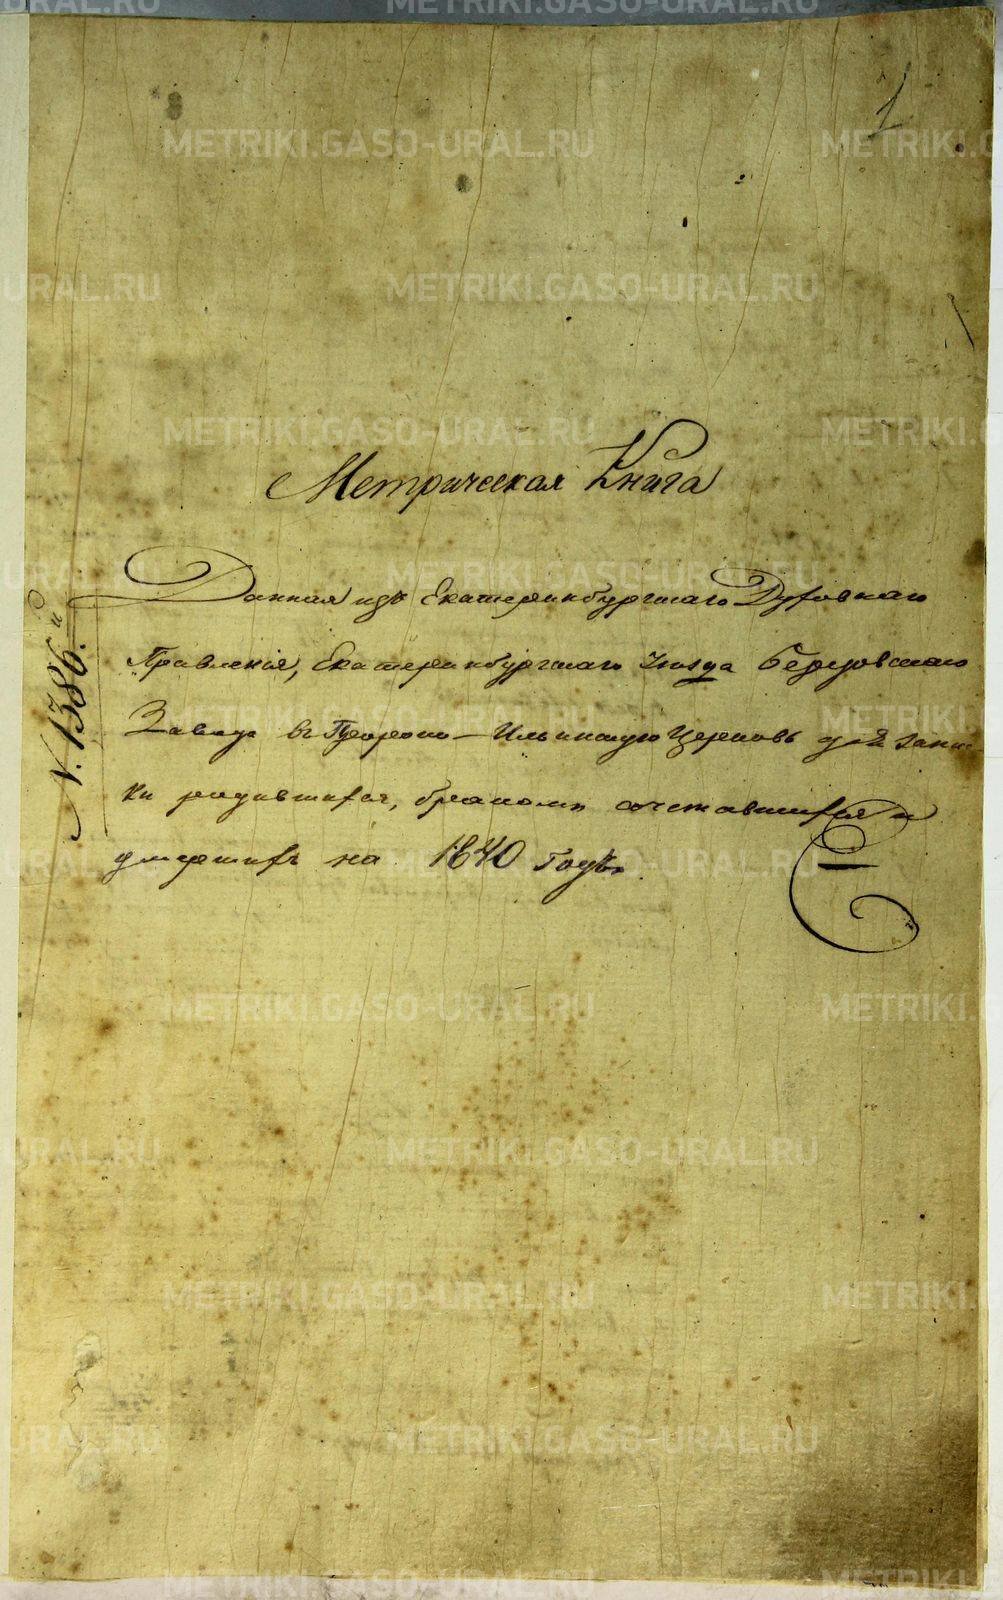 1
Метрическая Книга
Данная изъ Екатеринбургскаго Духовнаго
Правленія, Екатеринбургскаго Уезда Березовскаго
Завода въ Пророко-Ильинскую Церковь для запис-
ки родившихся, бракомъ сочетавшихся и
умершихъ на 1840 годъ.
N. 1386.й
METRIKI.GASO-URAL.RU